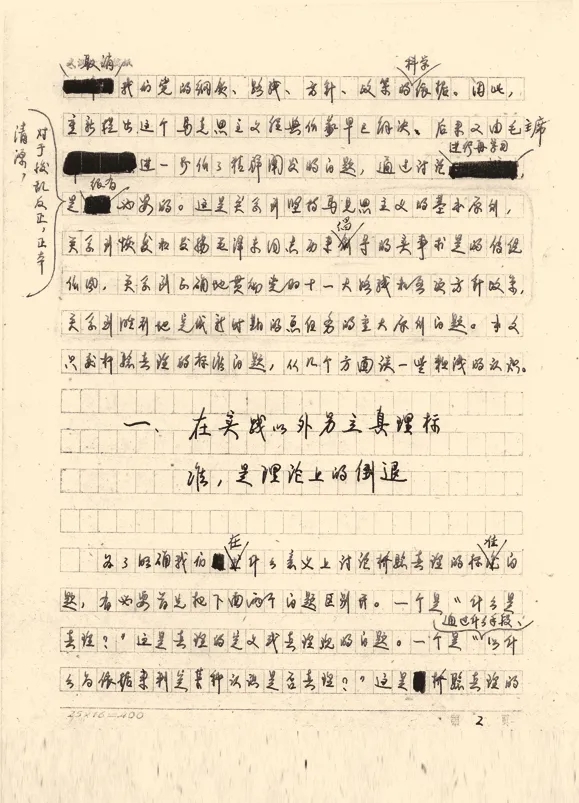 取消 科学
我们党的纲领、路线、方针、政策的依据。因此,
重新提出这个马克思主义经典作家早已解决、后来又由毛主席
进行再学习
进一步作了精辟阐发的问题,通过讨论
很有
是 必要的。这是关系到坚持马克思主义的基本原则,
倡
关系到恢复和发扬毛泽东同志历来 导的实事求是的传统
作风,关系到正确地贯彻党的十一大路线和各项方针政策,
关系到胜利地完成新时期的总任务的重大原则问题。本文
只就检验真理的标准问题,从几个方面谈一些粗浅的认识。
对于拨乱反正,正本
清源,
一、在实践以外另立真理标
准,是理论上的倒退
在 准
为了明确我们 什么意义上讨论检验真理的标 问
题,有必要首先把下面两个问题区别开。一个是“什么是
通过什么手段、
真理?”这是真理的定义或真理观的问题。一个是“以什
么为依据来判定某种认识是否真理?”这是 检验真理的
25×16=400
2